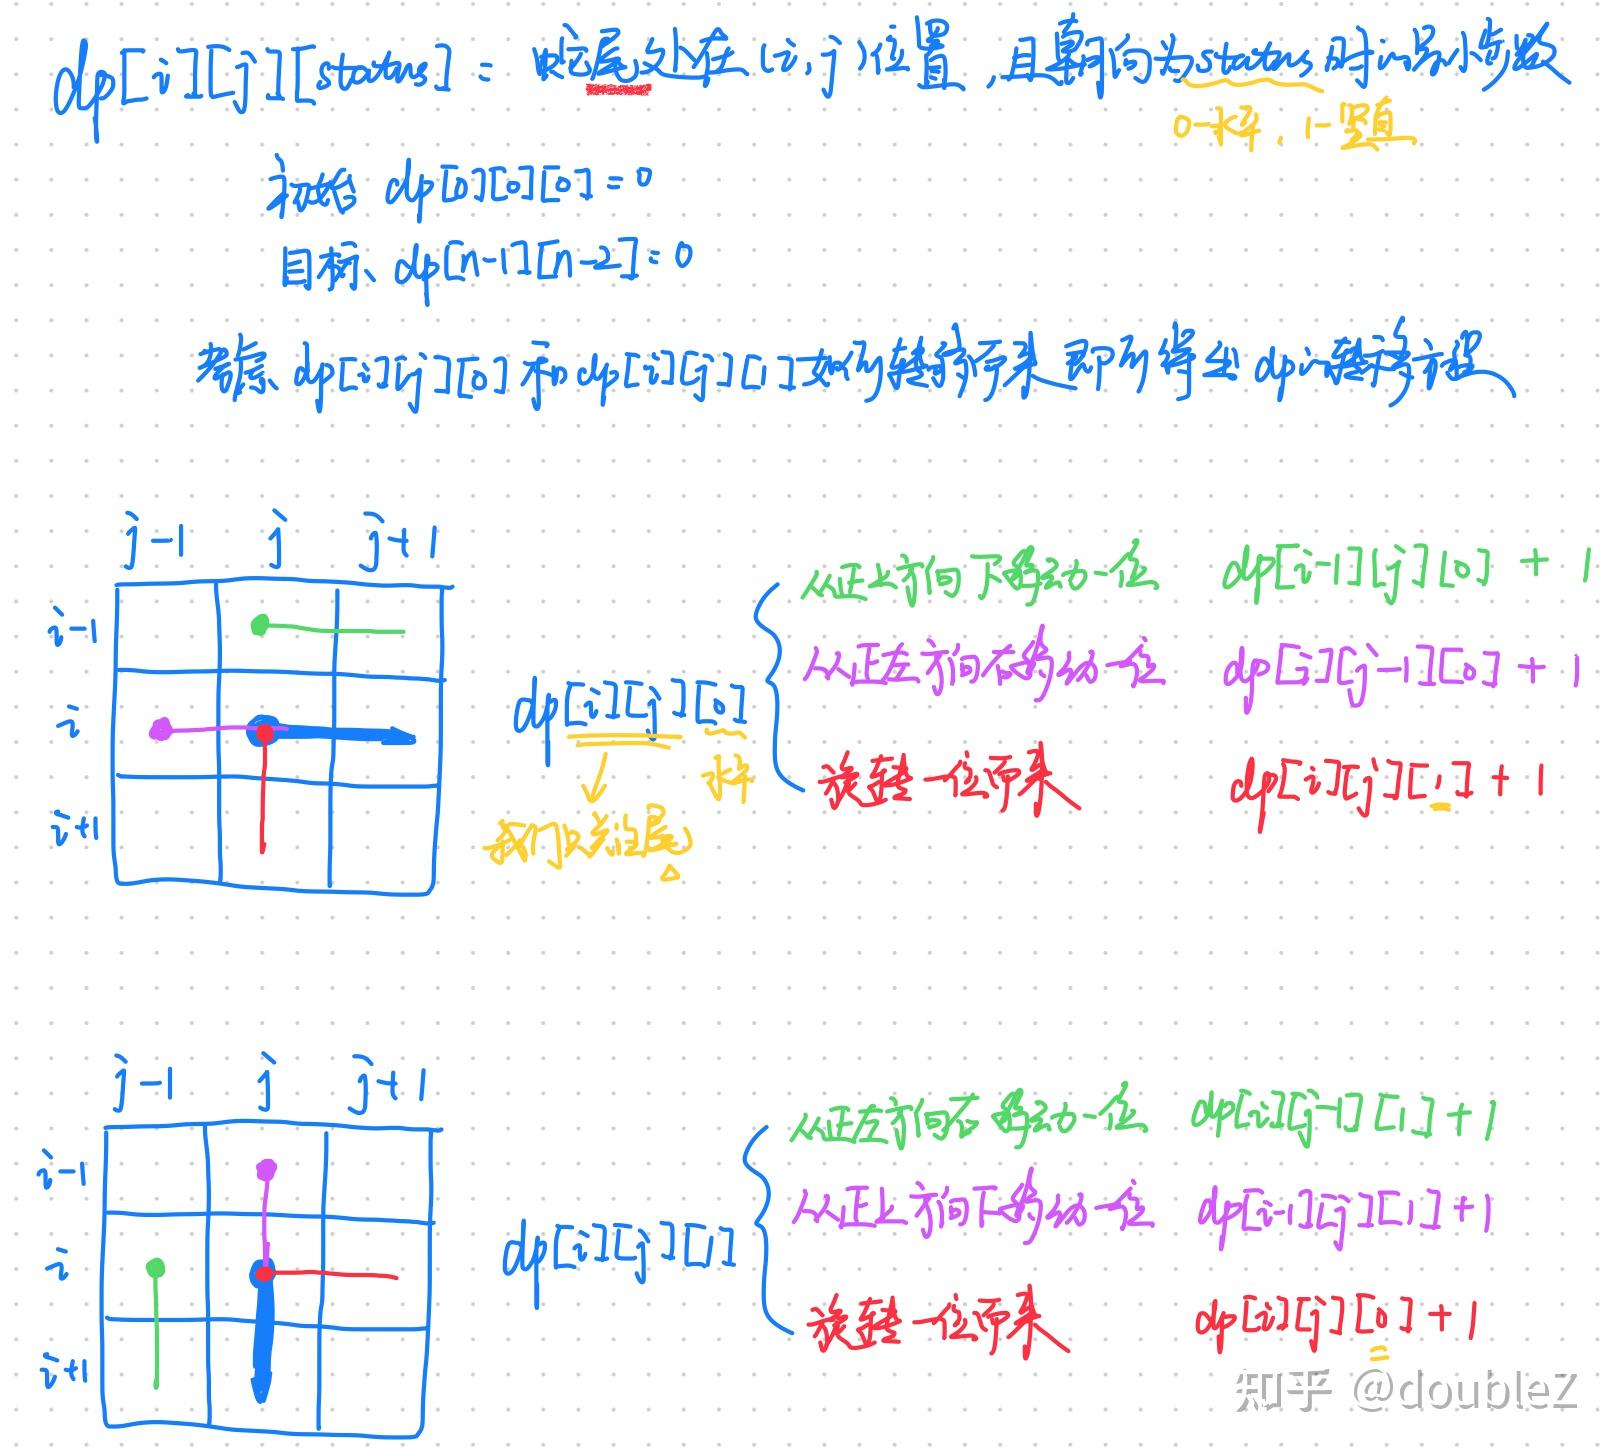 dp[i][j][status] = 蛇尾处在(i,j)位置,且朝向为status时的最小步数
0-水平,1-竖直
初始 dp[0][0][0]=0
目标、dp[n-1][n-2]=0
考虑、dp[i][j][0]和dp[i][j][1]如何转移而来 即可得出 dp的转移方程
j-1 j j+1
i-1
i
i+1
dp[i][j][0]
水平
我们只关注尾
从正上方向下移动一位 dp[i-1][j][0]+1
从正左方向右移动一位 dp[i][j-1][0]+1
旋转一位而来 dp[i][j][1]+1
j-1 j j+1
i-1
i
i+1
dp[i][j][1]
从正左方向右移动一位 dp[i][j-1][1]+1
从正上方向下移动一位 dp[i-1][j][1]+1
旋转一位而来 dp[i][j][0]+1
知乎 @doubleZ